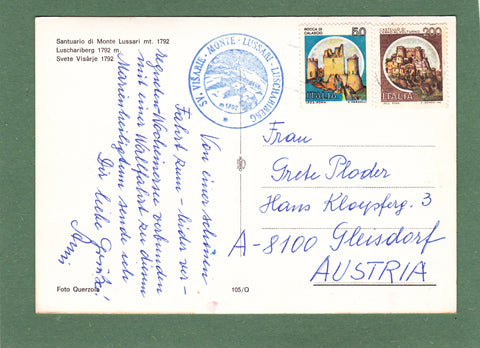 Santuario di Monte Lussari mt. 1792
Luschariberg 1792 m.
Svete Višarje 1792
SV. VIŠARJE - MONTE - LUSSARI - LUSCHARIBERG
m 1792
ROCCA DI CALASCIO
50
ITALIA
200
ITALIA
Von einer schönen
Fahrt zum – leider ver-
regneten Wochenende verbunden
mit einer Wallfahrt zu diesem
Marienheiligtum sende ich
Dir liebe Grüße!
Frau
Grete Ploder
Hans Kloepferg. 3
A-8100 Gleisdorf
AUSTRIA
Foto Querzola
105/Q